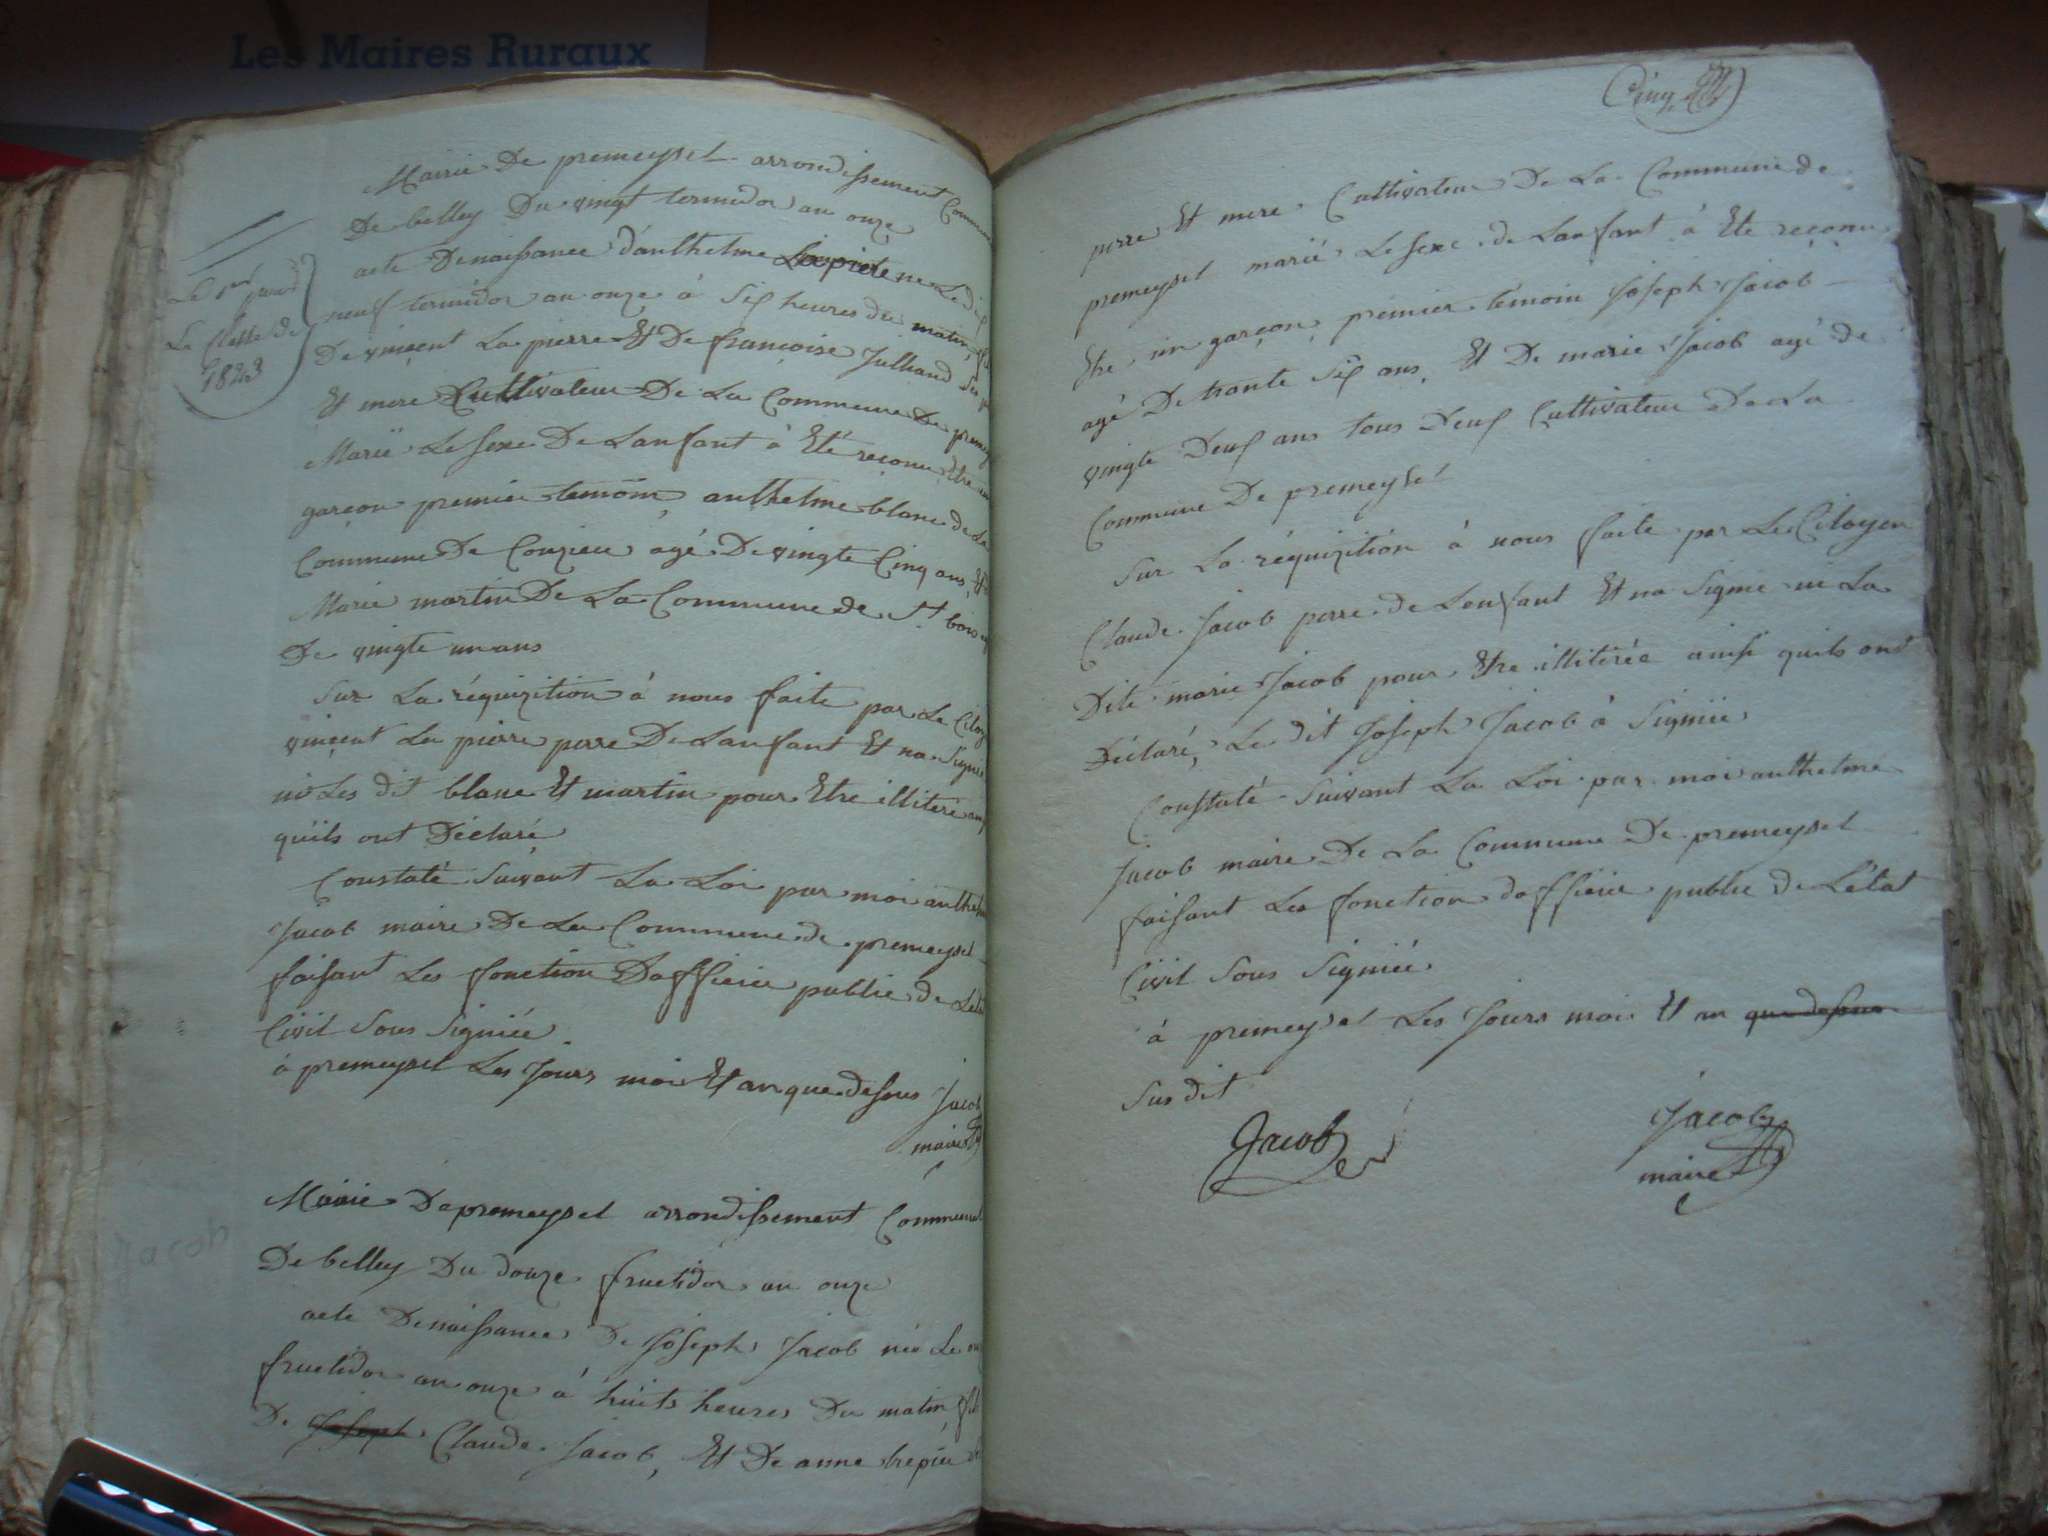 Les Maires Ruraux
Mairie De premeysel arrondissement Commun
De belley Du vingt termidor an onze
acte Denaissance d'anthelme Lapierre ne Le dix
neuf termidor an onze à Six heures du matin, fils
De vinçent La pierre Et De françoise Julliand Ses
Et mere Cultivateur De La Commune De premey
Marié Le sexe De Lanfant à Eté reçonu Etre un
garçon premier temoin anthelme blanc de La
Commune De Conzieu agé De vingte Cinq ans, Et
Marie martin De La Commune de St bois
De vingte un ans
Sur La réquizition à nous faite par Le Citoy
vinçent La pierre perre De Lanfant Et na Signié
ni Les dit blanc Et martin pour Etre illiteré
quils ont Déclaré
Constaté Suivant La Loi par moi anthelm
Jacob maire De La Commune de premeysel
faisant Les fonction Dofficiee public de Leta
Civil Sous Signiée
à premeysel Les Jours moi Et an que desous Jacob
maire
Le 1er
La Classe de
1823
Jacob
Mairie De premeysel arrondissement Communal
De belley Du douze fructidor an onze
acte Denaissance De Joseph Jacob née Le
fructidor an onze à huits heures Du matin fils
De Joseph Claude Jacob, Et De anne trepiee
Cinq
perre Et mere Cultivateur De La Commune de
premeysel marié Le sexe de Lanfant à Eté reçonu
Etre un garçon premier témoin Joseph Jacob
agé De trante Six ans, Et De marie Jacob agé de
vingte Deux ans tous Deux Cultivateur De La
Commune De premeysel
Sur La réquizition à nous faite par Le Citoyen
Claude Jacob perre de Lenfant Et na Signie ni La
Dite marie Jacob pour Etre illitirée ainsi quils ont
Déclaré, Le dit Joseph Jacob à Signiée
Constaté Suivant La Loi par moi anthelme
Jacob maire De La Commune De premeysel
faisant Les fonction dofficiee public de Létat
Civil Sous Signiée
à premeysel Les Jours moi Et an que desous
Sus dit
Jacob
Jacob
maire